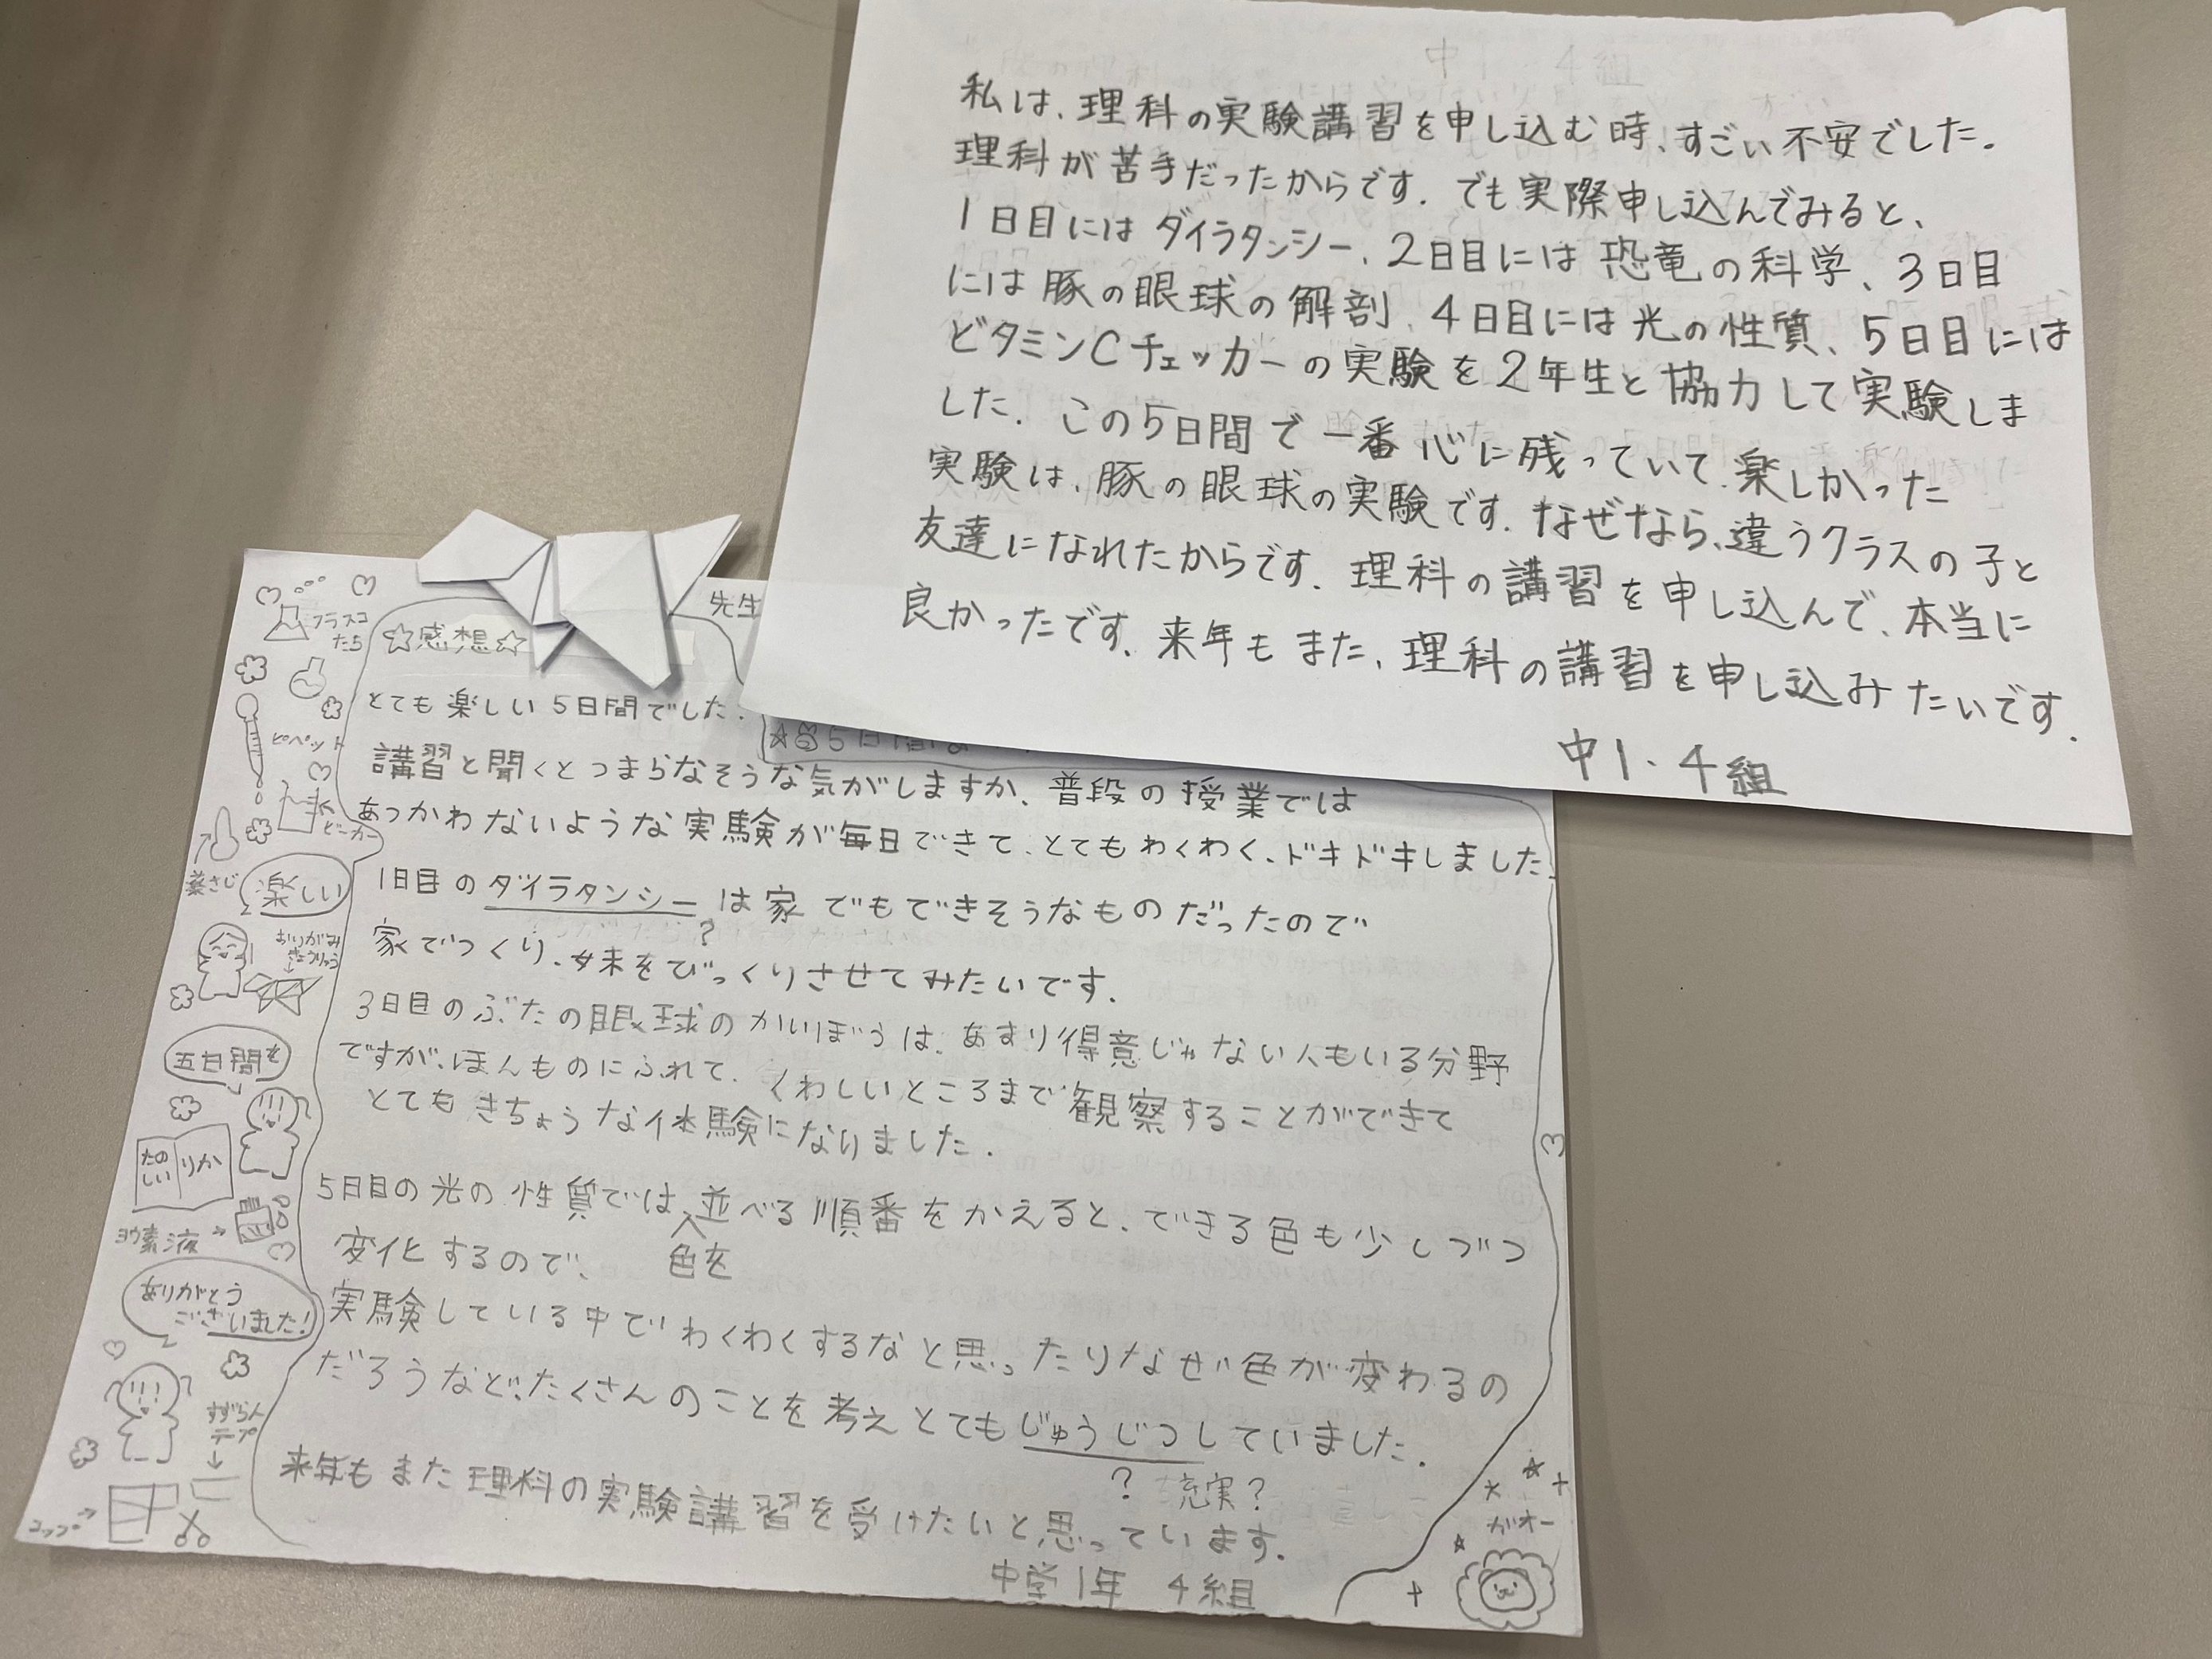 中1.4組
私は、理科の実験講習を申し込む時、すごい不安でした。
理科が苦手だったからです。でも実際申し込んでみると、
1日目にはダイラタンシー、2日目には恐竜の科学、3日目
には豚の眼球の解剖、4日目には光の性質、5日目には
ビタミンCチェッカーの実験を2年生と協力して実験しま
した。この5日間で一番心に残っていて、楽しかった
実験は、豚の眼球の実験です。なぜなら、違うクラスの子と
友達になれたからです。理科の講習を申し込んで、本当に
良かったです。来年もまた、理科の講習を申し込みたいです。
中1.4組
先生
☆感想☆
とても楽しい5日間でした。
☆5日間
講習と聞くとつまらなそうな気がしますが、普段の授業では
あつかわないような実験が毎日できて、とてもわくわく、ドキドキしました
1日目のダイラタンシーは家でもできそうなものだったので
?
家でつくり、妹をびっくりさせてみたいです。
3日目のぶたの眼球のかいぼうは、あまり得意じゃない人もいる分野
ですが、ほんものにふれて、くわしいところまで観察することができて
とてもきちょうな体験になりました。
5日目の光の性質では、並べる順番をかえると、できる色も少しづつ
色を
変化するので、
実験している中でわくわくするなと思ったりなぜ色が変わるの
だろうなど、たくさんのことを考えとてもじゅうじつしていました。
? 充実?
来年もまた理科の実験講習を受けたいと思っています。
中学1年 4組
フラスコ
たち
ピペット
ビーカー
薬さじ
楽しい
おりがみ
きょうりゅう
五日間を
たの
しい
りか
ヨウ素液→
ありがとう
ございました!
すずらん
テープ
コップ→
3
がオー